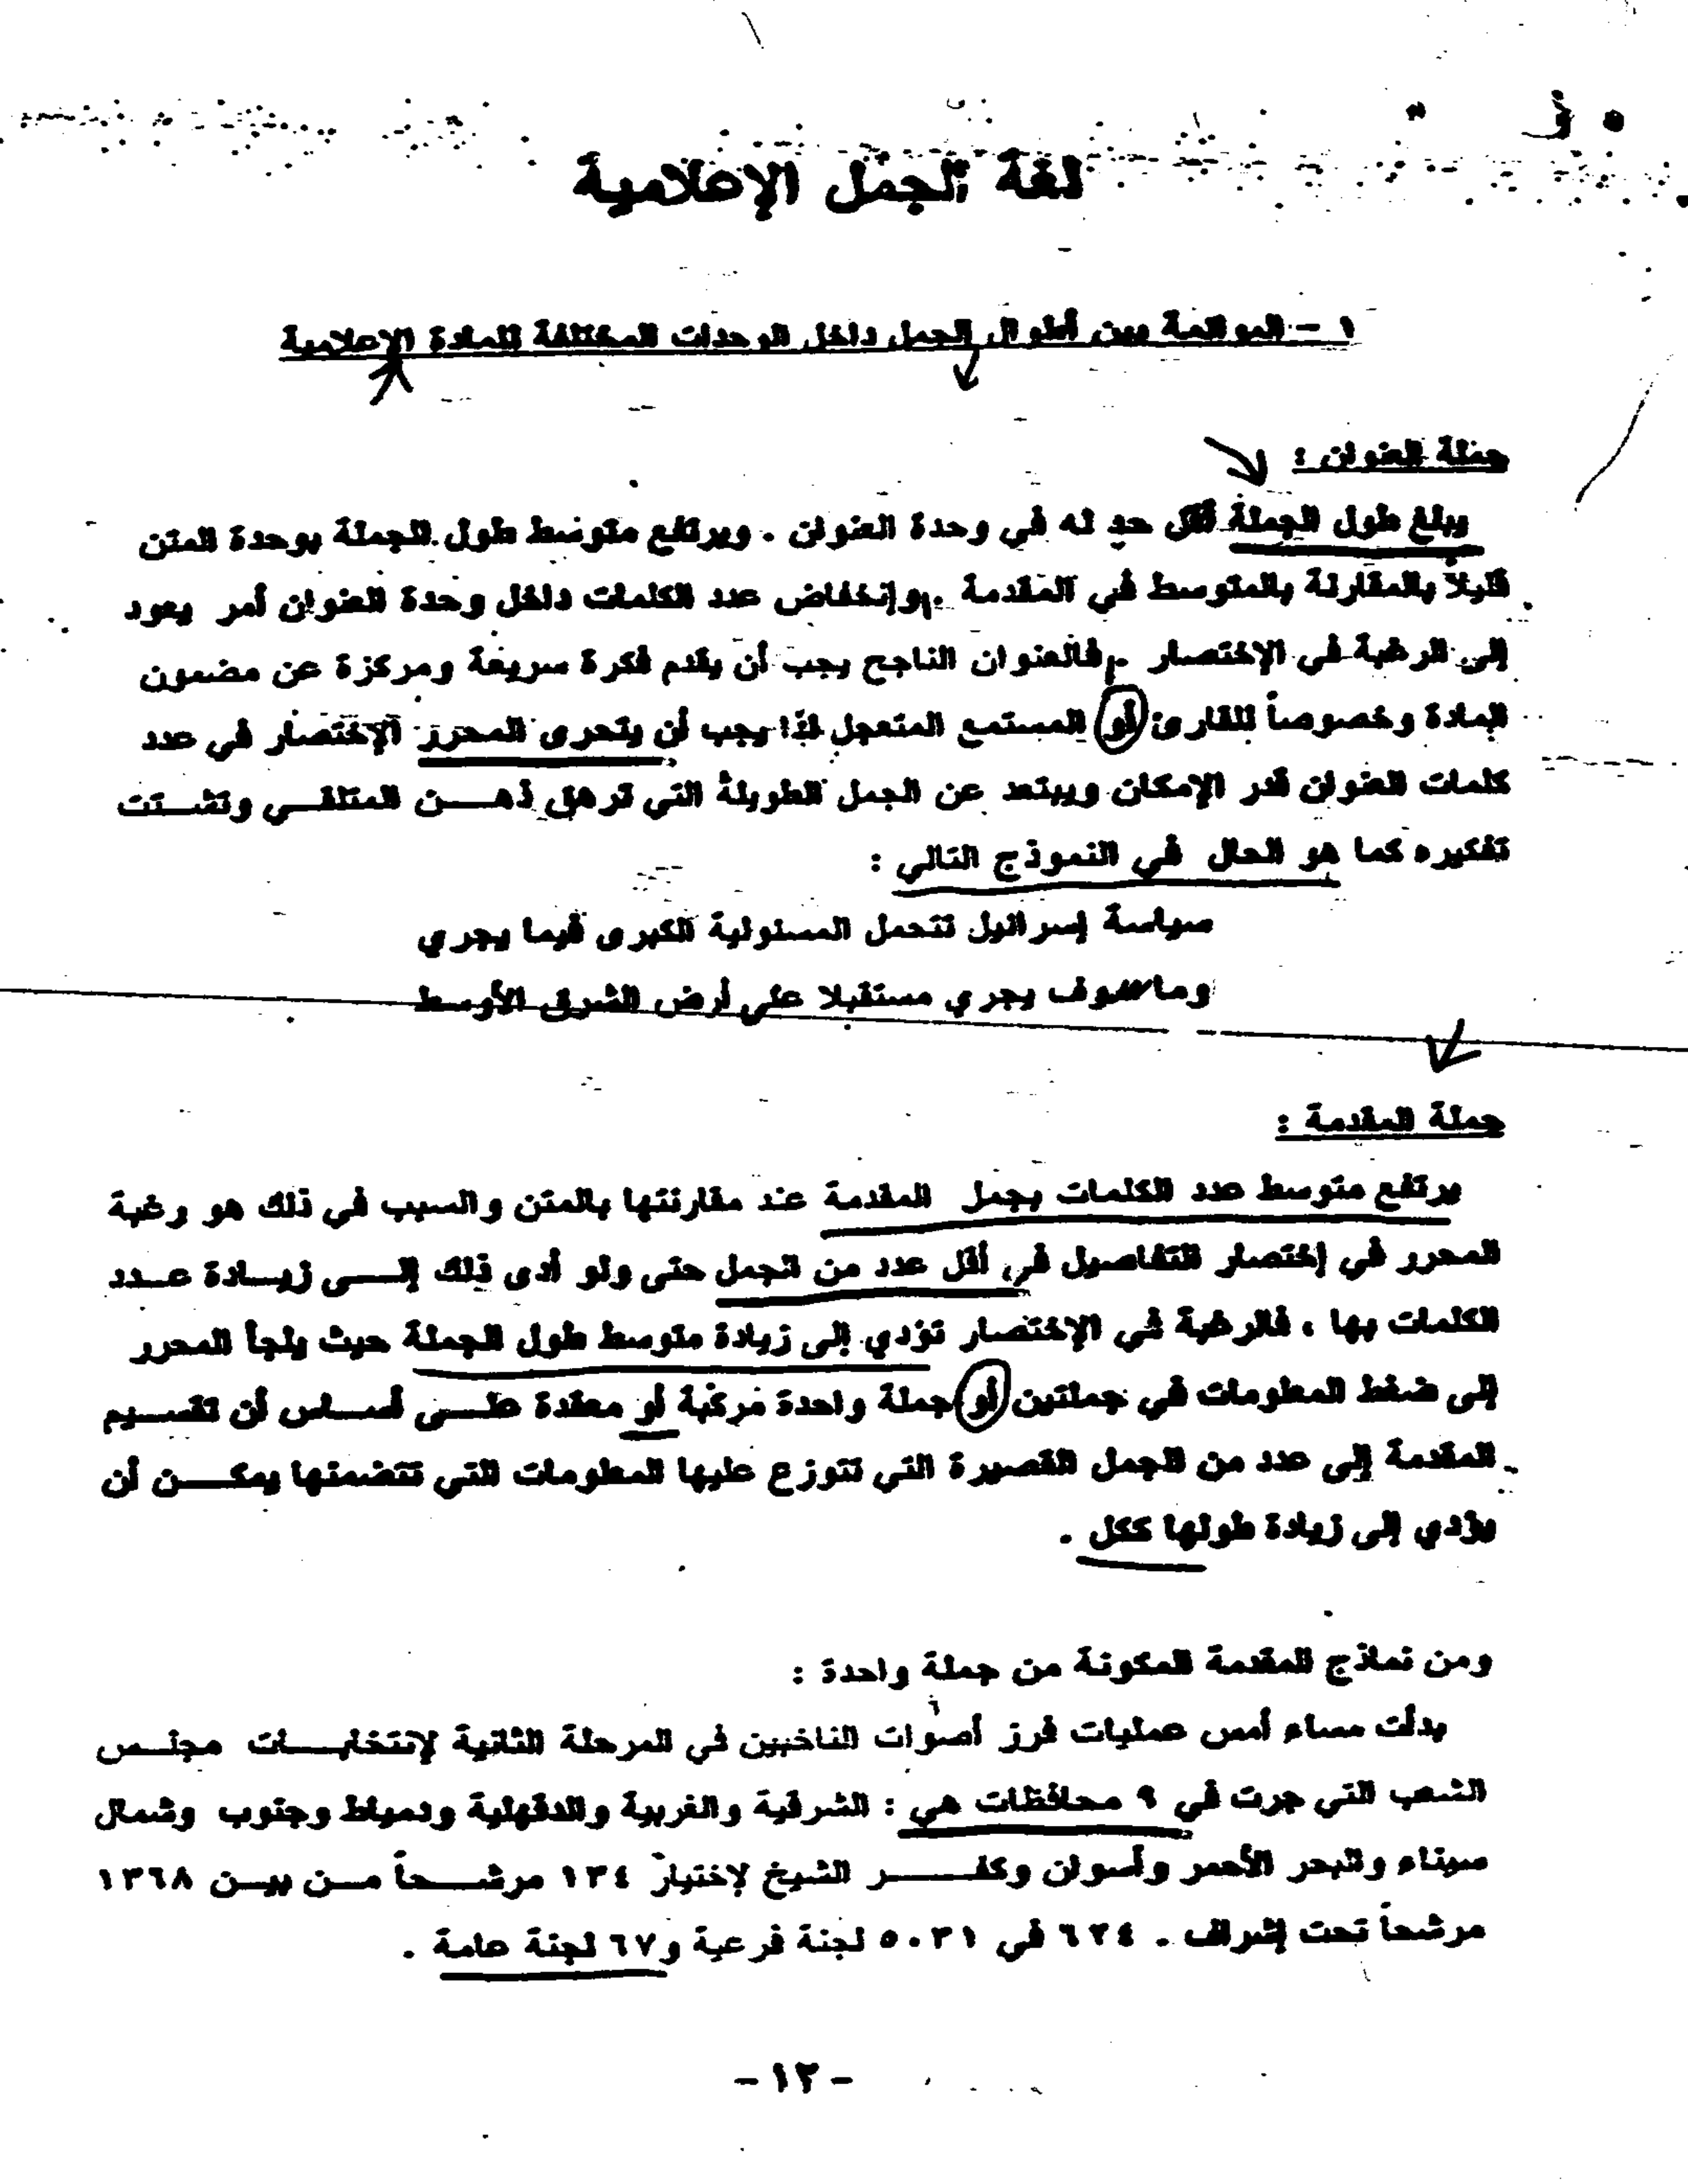 لغة الجمل الإعلامية
١ - الموائمة بين أطوال الجمل داخل الوحدات المختلفة للمادة الإعلامية
جملة العنوان :
يبلغ طول الجملة أقل حد له في وحدة العنوان . ويرتفع متوسط طول الجملة بوحدة المتن
قليلاً بالمقارنة بالمتوسط في المقدمة . وإنخفاض عدد الكلمات داخل وحدة العنوان أمر يعود
إلى الرغبة في الإختصار . فالعنوان الناجح يجب أن يقدم فكرة سريعة ومركزة عن مضمون
المادة وخصوصاً للقارئ أو المستمع المتعجل لذا يجب أن يتحرى المحرر الإختصار في عدد
كلمات العنوان قدر الإمكان ويبتعد عن الجمل الطويلة التي ترهق ذهـــن المتلقـــي وتشـــتت
تفكيره كما هو الحال في النموذج التالي :
سياسة إسرائيل تتحمل المسئولية الكبرى فيما يجري
وما سوف يجري مستقبلا على أرض الشرق الأوسط
جملة المقدمة :
يرتفع متوسط عدد الكلمات بجمل المقدمة عند مقارنتها بالمتن والسبب في ذلك هو رغبة
المحرر في إختصار التفاصيل في أقل عدد من الجمل حتى ولو أدى ذلك إلـــى زيـــادة عـــدد
الكلمات بها ، فالرغبة في الإختصار تؤدي إلى زيادة متوسط طول الجملة حيث يلجأ المحرر
إلى ضغط المعلومات في جملتين أو جملة واحدة مركبة أو معقدة علـــى أســـاس أن تقســـيم
المقدمة إلى عدد من الجمل القصيرة التي تتوزع عليها المعلومات التي تتضمنها يمكـــن أن
يؤدي إلى زيادة طولها ككل .
ومن نماذج المقدمة المكونة من جملة واحدة :
بدأت مساء أمس عمليات فرز أصوات الناخبين في المرحلة الثانية لإنتخابـــات مجلـــس
الشعب التي جرت في ٩ محافظات هي : الشرقية والغربية والدقهلية ودمياط وجنوب وشمال
سيناء والبحر الأحمر وأسوان وكفـــر الشيخ لإختيار ١٣٤ مرشـــحاً مـــن بيـــن ١٣٦٨
مرشحاً تحت إشراف . ٦٣٤ في ٥٠٣١ لجنة فرعية و٦٧ لجنة عامة .
-١٢-